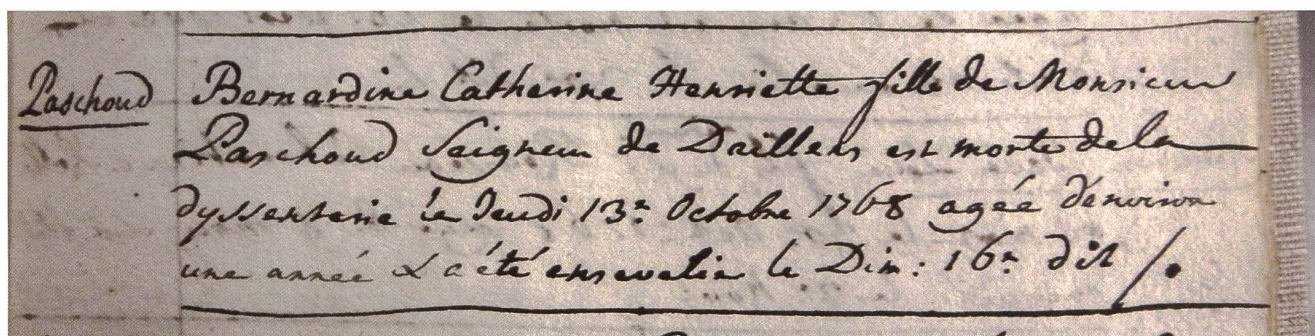 Paschoud
Bernardine Catherine Henriette fille de Monsieur
Paschoud Seigneur de Daillens est morte de la
dyssenterie le Jeudi 13.e Octobre 1768 agée d'environ
une année & a été ensevelie le Dim: 16.e dit /.